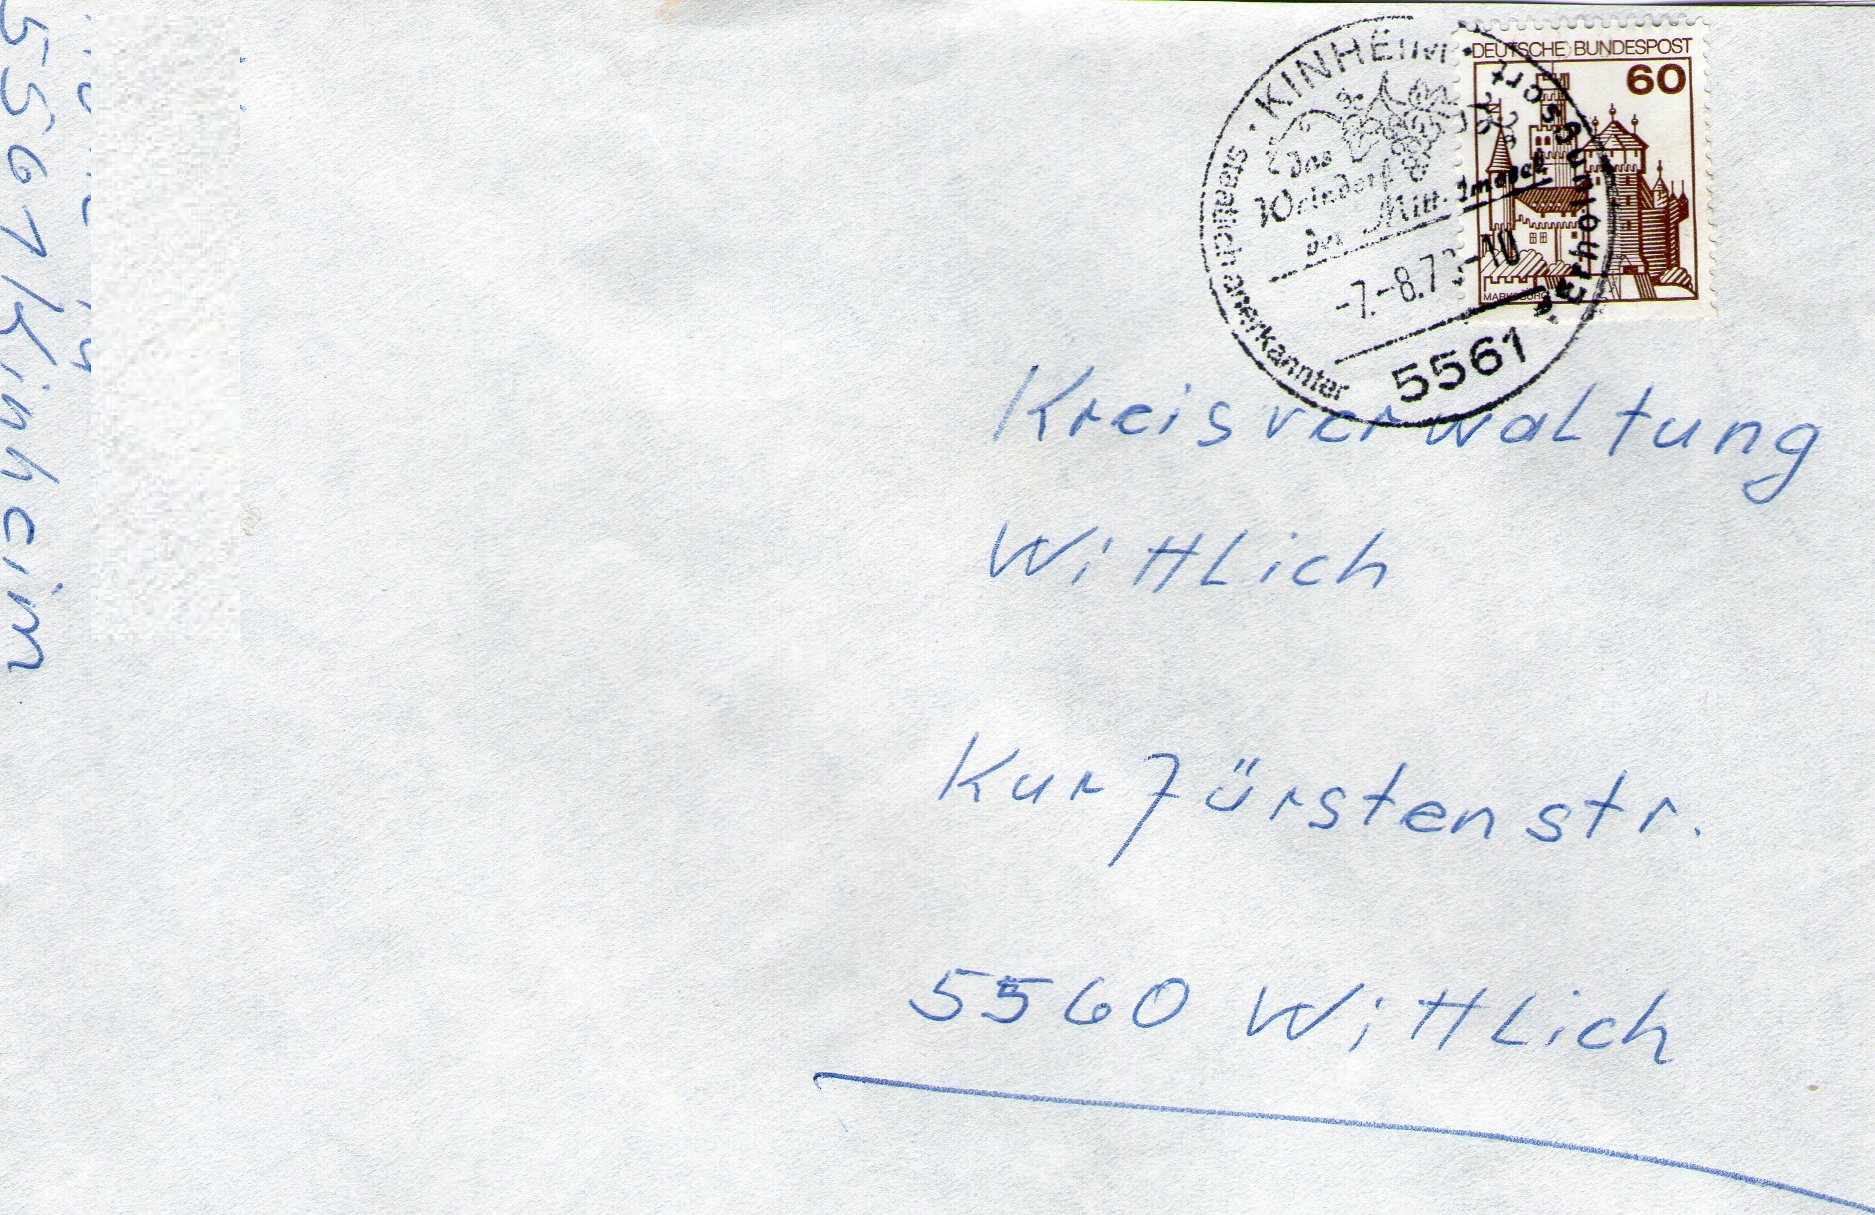 5561 Kinheim
DEUTSCHE BUNDESPOST
60
MARKSBURG
KINHEIM
das
Weindorf
der Mittelmosel
-7.-8.7
-10
5561
staatlich anerkannter
Erholungsort
Kreisverwaltung
Wittlich
Kurfürstenstr.
5560 Wittlich